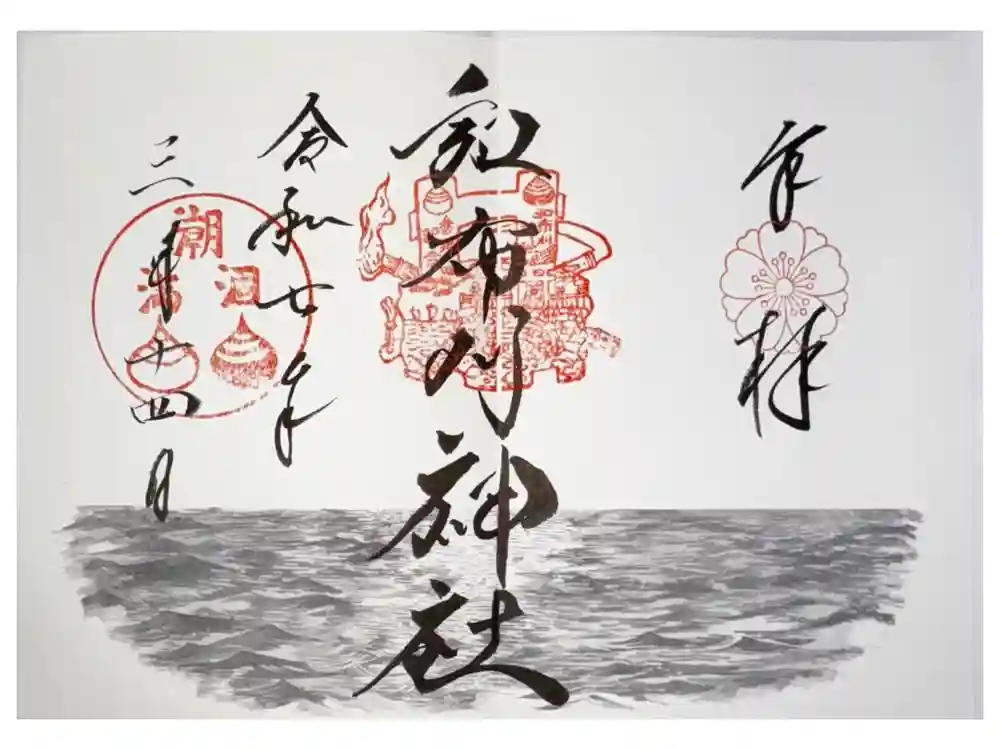 奉拝
和布刈神社
令和七年
三月十四日
潮
満 涸